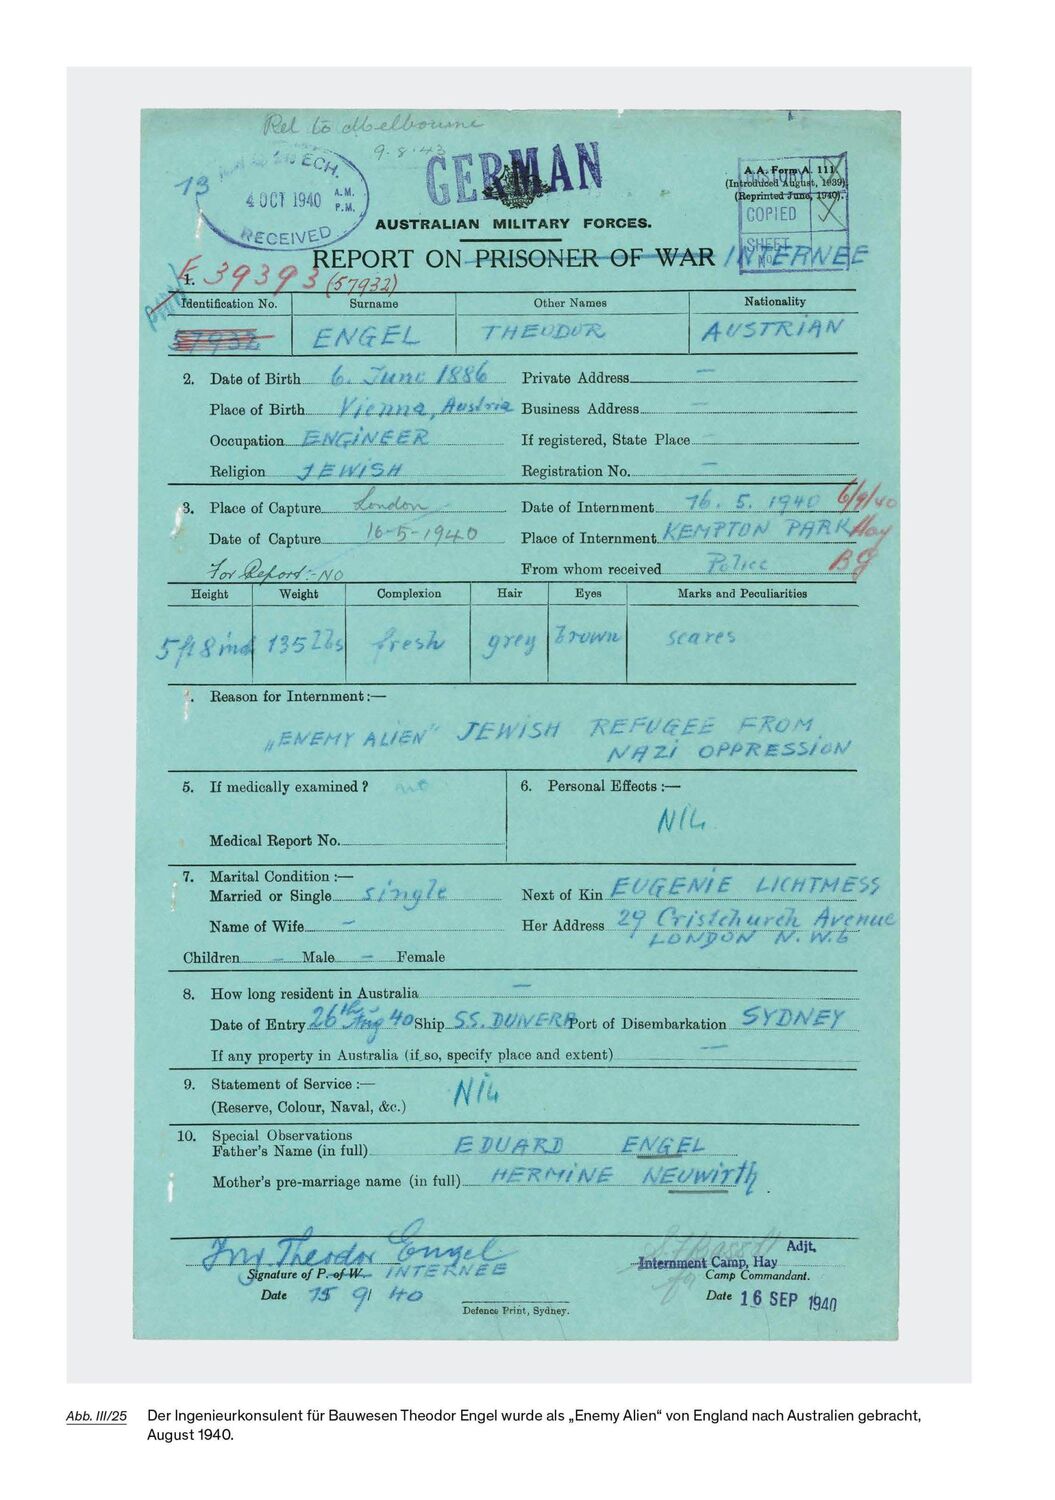 Rel to Melbourne
9.8.43
GERMAN
ECH.
13
4 OCT 1940 A.M. P.M.
RECEIVED
A.A. Form A. 111.
(Introduced August, 1939).
(Reprinted June, 1940).
HISTORY
COPIED
SHEET
No.
AUSTRALIAN MILITARY FORCES.
REPORT ON PRISONER OF WAR INTERNEE
1. E 39393 (57932)
Identification No. Surname Other Names Nationality
57932 ENGEL THEODOR AUSTRIAN
2. Date of Birth 6. June 1886 Private Address —
Place of Birth Vienna, Austria Business Address —
Occupation ENGINEER If registered, State Place —
Religion JEWISH Registration No. —
3. Place of Capture London Date of Internment 16. 5. 1940 6/9/40
Date of Capture 16-5-1940 Place of Internment KEMPTON PARK Hay
For Report:- NO From whom received Police BG
Height Weight Complexion Hair Eyes Marks and Peculiarities
5 ft 8 ind 135 lbs fresh grey brown scares
. Reason for Internment :—
„ENEMY ALIEN" JEWISH REFUGEE FROM
NAZI OPPRESSION
5. If medically examined ? no 6. Personal Effects :—
NIL
Medical Report No.
7. Marital Condition :—
Married or Single single Next of Kin EUGENIE LICHTMESS
Name of Wife — Her Address 29 Cristchurch Avenue
LONDON N.W.6
Children — Male — Female
8. How long resident in Australia —
Date of Entry 26th Aug 40 Ship S.S. DUNERA Port of Disembarkation SYDNEY
If any property in Australia (if so, specify place and extent) —
9. Statement of Service :— NIL
(Reserve, Colour, Naval, &c.)
10. Special Observations
Father's Name (in full) EDUARD ENGEL
Mother's pre-marriage name (in full) HERMINE NEUWIRTH.
Ing. Theodor Engel Adjt.
Signature of P. of W. INTERNEE Internment Camp, Hay
Camp Commandant.
Date 15 9 40 Date 16 SEP 1940
Defence Print, Sydney.
Abb. III/25 Der Ingenieurkonsulent für Bauwesen Theodor Engel wurde als „Enemy Alien“ von England nach Australien gebracht,
August 1940.